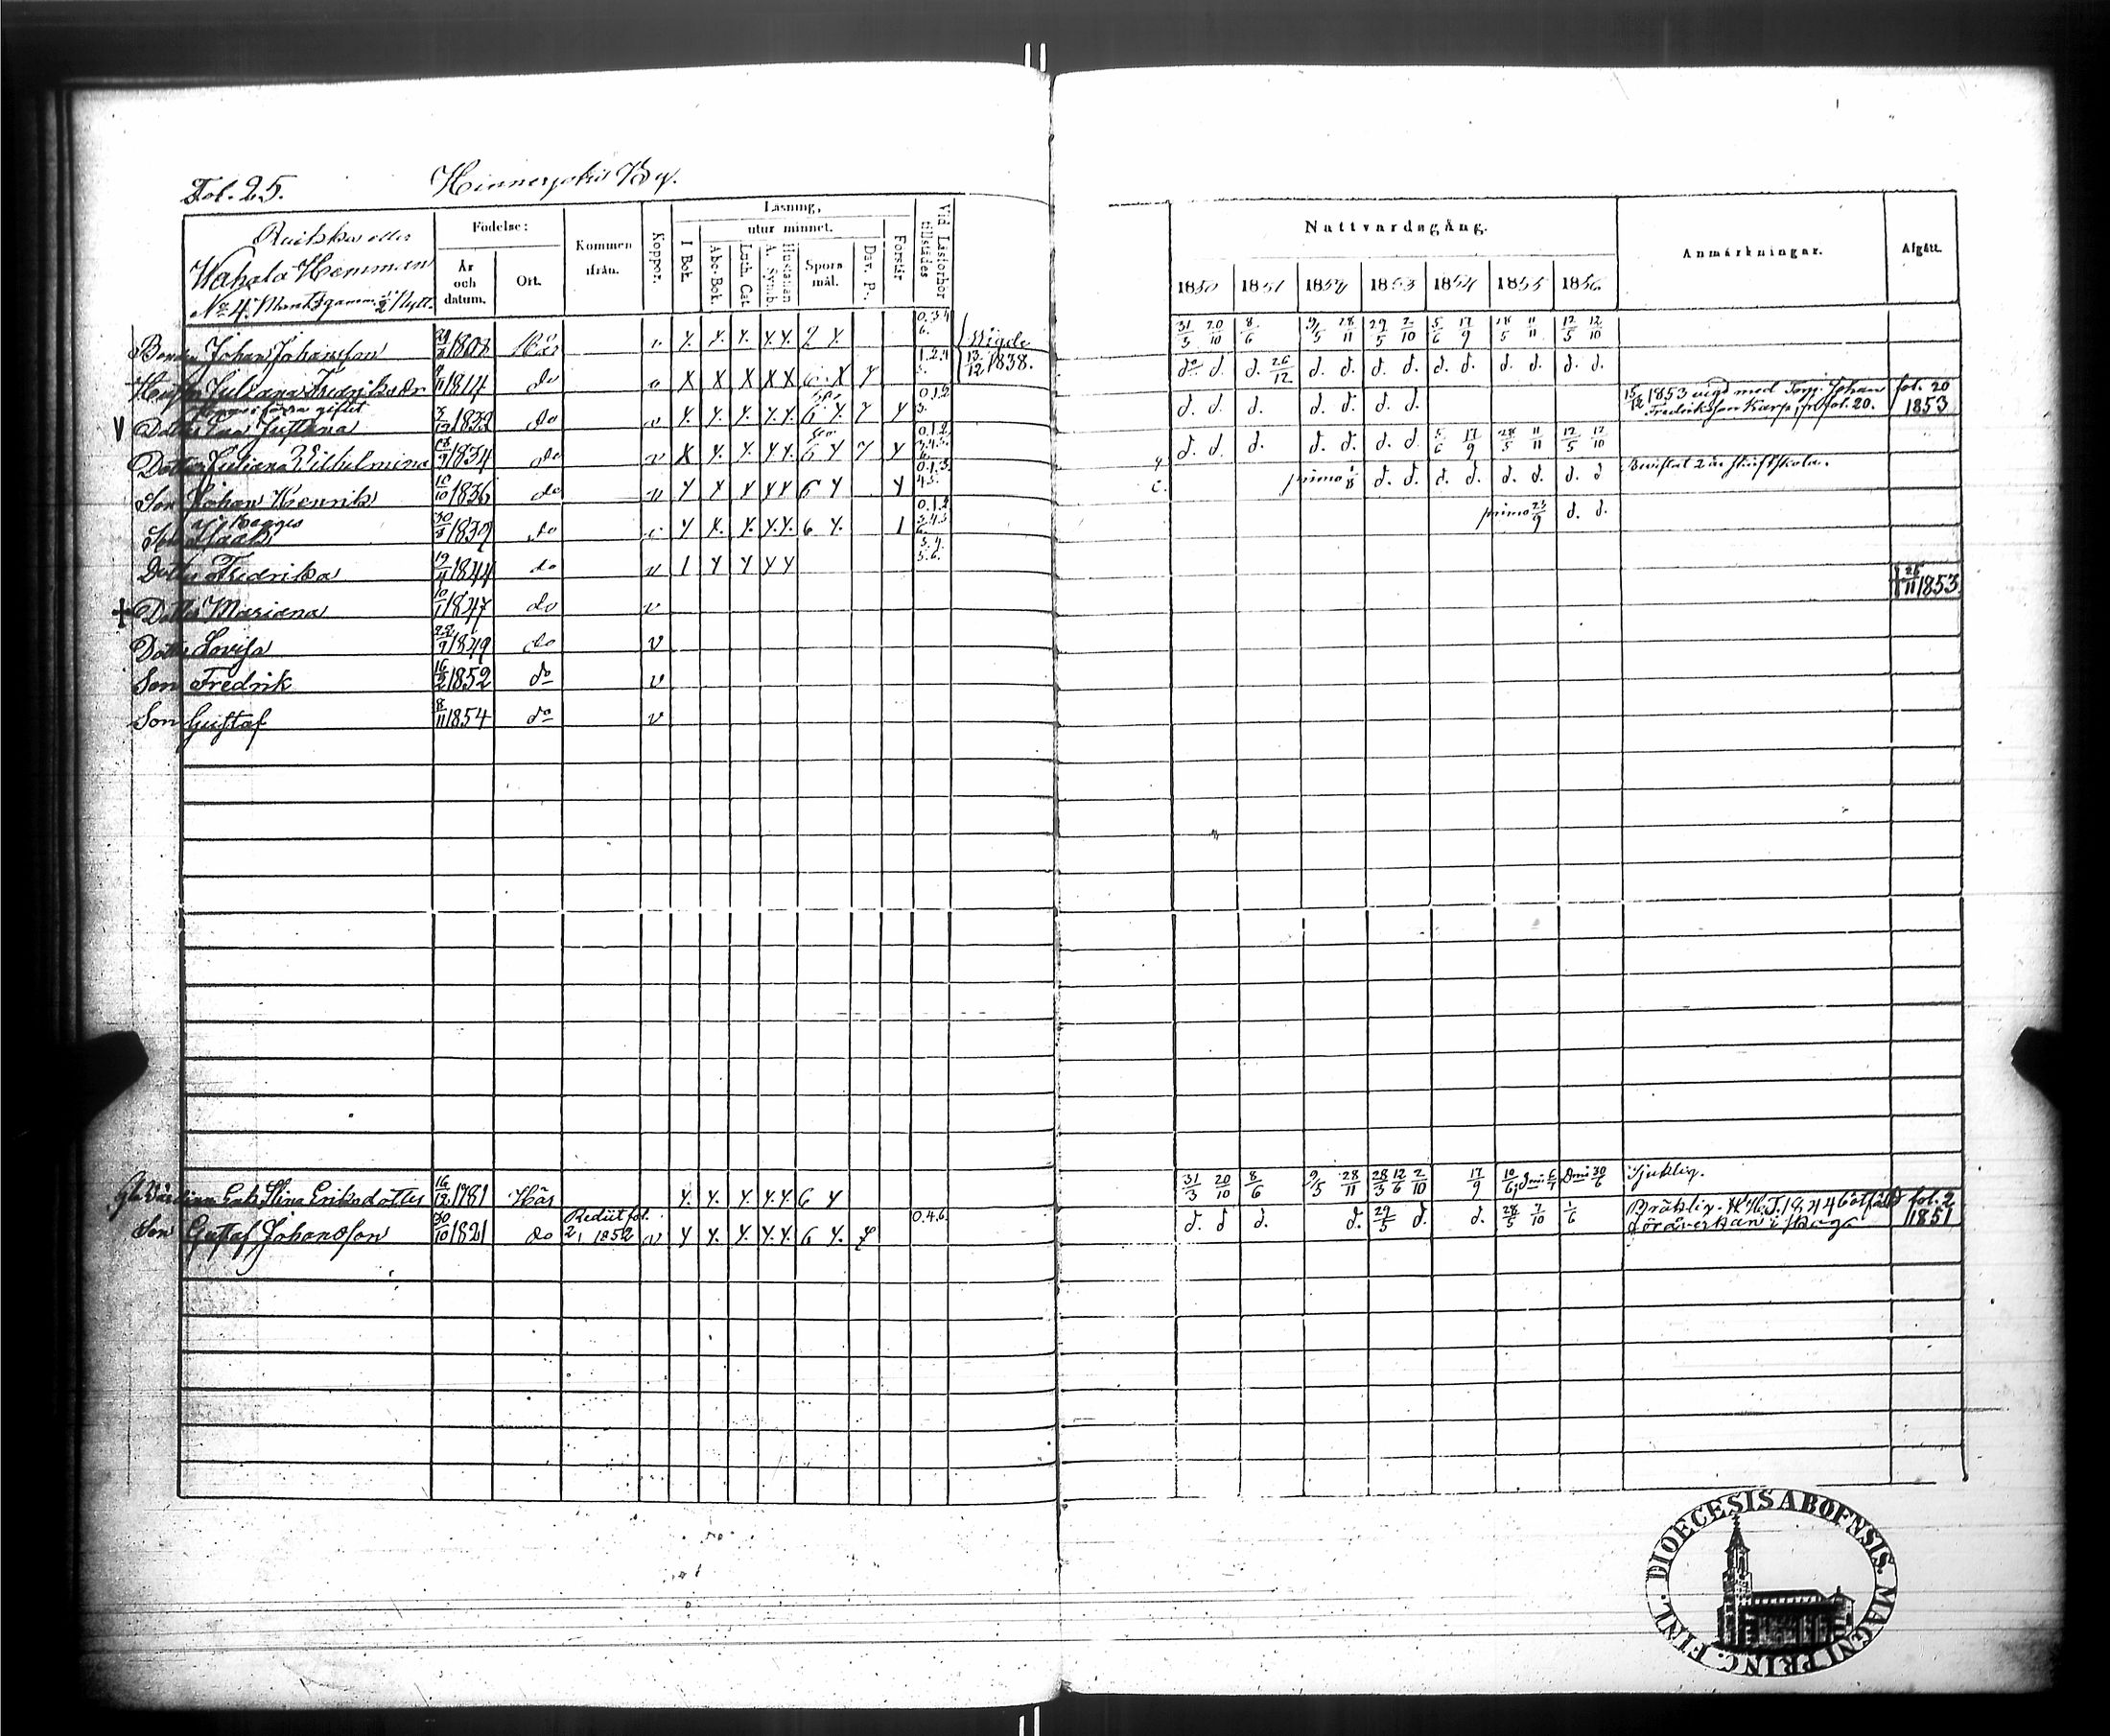 Fol. 25. Hinnerjoki By.
Ruitska eller
Wahala Hemman
No 4. Mant. 1/3 gamm. 1/2 Nytt.
Födelse:
År och datum.
Ort.
Kommen ifrån.
Koppor.
Läsning,
utur minnet.
I Bok.
Abc-Bok.
Luth. Cat.
A. Symb.
Hustaflan
Spörs mål.
Dav. P.
Förstår
Vid Läsförhör tillstädes
Nattvardsgång.
1850 1851 1852 1853 1854 1855 1856
Anmärkningar.
Afgått.
Bonden Johan Johansson 1808 Här v y. y. y. y. y. 2 y. 0.3.4 6. Wigde 31/5 20/10 8/6 9/5 28/11 29/5 2/10 5/6 17/9 28/5 11/11 12/5 12/10
Hustru Juliana Fredriksdr 1814 do v X X X X X 6 X 7 1.2.4 5. 13/12 1838. do d. d. 26/12 d. d. d. d. d. d. d. d. d. d.
förra giftet
V Dotter Justina 1832 do v y. y. y. y. y. 6 y. 7 y 0.1.2 3. d. d. d. d. d. d. d. 15/12 1853 vigd med Torp. Johan Fredriksson Karp, fol. 20. fol. 20 1853
Dotter Juliana Wilhelmina 1834 do v X y. y. y. y. 6 y 7 y 0.1.2 3.4.5. 6. d. d. d. d. d. d. d. 5/6 17/9 28/5 11/11 12/5 12/10
Son Johan Henrik 10/10 1836 do v y y y y y 6 y y 0.1.3 4.5. primo d. d. d. d. d. d. d. d Bevistat 2 år skriftskolan.
af Bagges
Son Isaak 30/3 1839 do v y X. y. y. y. 6 y. 1 0.1.2 3.4.5 6. primo 23/9 d. d.
Dotter Fredrika 19/4 1844 do v 1 y y y y 3.4. 5.6.
+ Dotter Mariana 10/1 1847 do v + 25/11 1853
Dotter Lovisa 22/9 1849 do v
Son Fredrik 16/2 1852 do v
Son Gustaf 8/11 1854 do v
Gla Värdinn Stina Eriksdotter 16/12 1781 Här y. y. y. y. y. 6 y 31/3 20/10 8/6 9/5 28/11 28/3 12/6 2/10 17/9 10/6 Dmi 6/7 Dmi 30/6 Sjuklig.
Son Gustaf Johansson 30/10 1821 do Rediit fol. 2, 1852 v y y. y. y. y. 6 y. 7 0.4.6. d. d d. d. 29/5 d. d. 28/5 7/10 1/6 Bräklig. 1844 fol. 2 1851
DIOECESIS ABOENSIS. MAGNI PRINC. FINL.